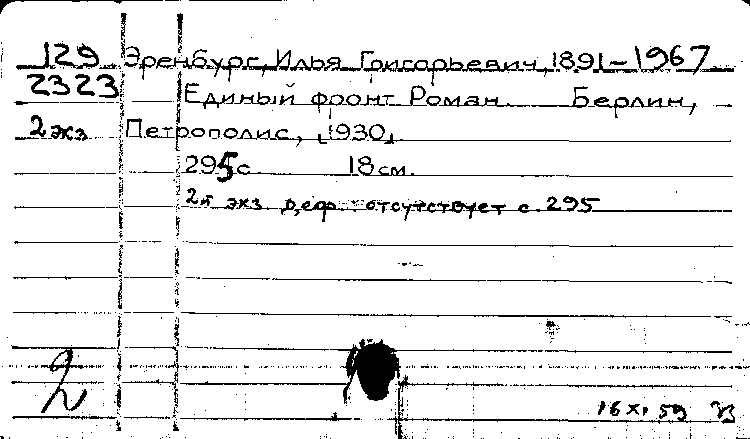 129 Эренбург, Илья Григорьевич, 1891-1967
2323 Единый фронт Роман. Берлин,
2 экз Петрополис, [1930].
295 с. 18 см.
2й экз. деф.: отсутствует с. 295
2
16 XI 59